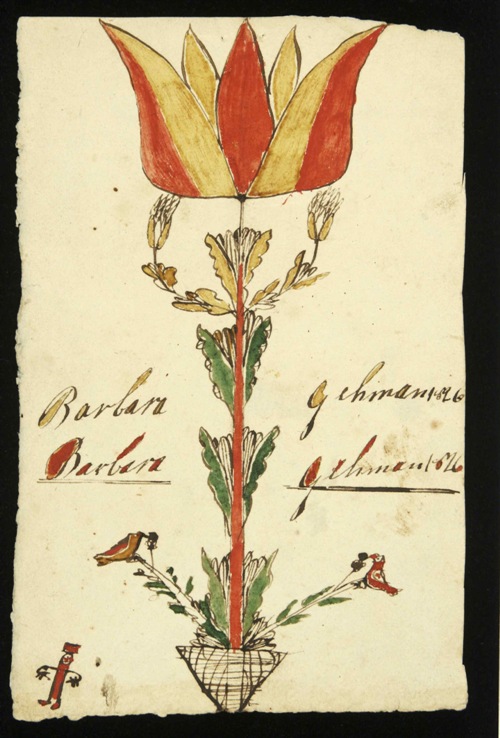 Barbara Gehman 1826
Barbara Gehman 1826